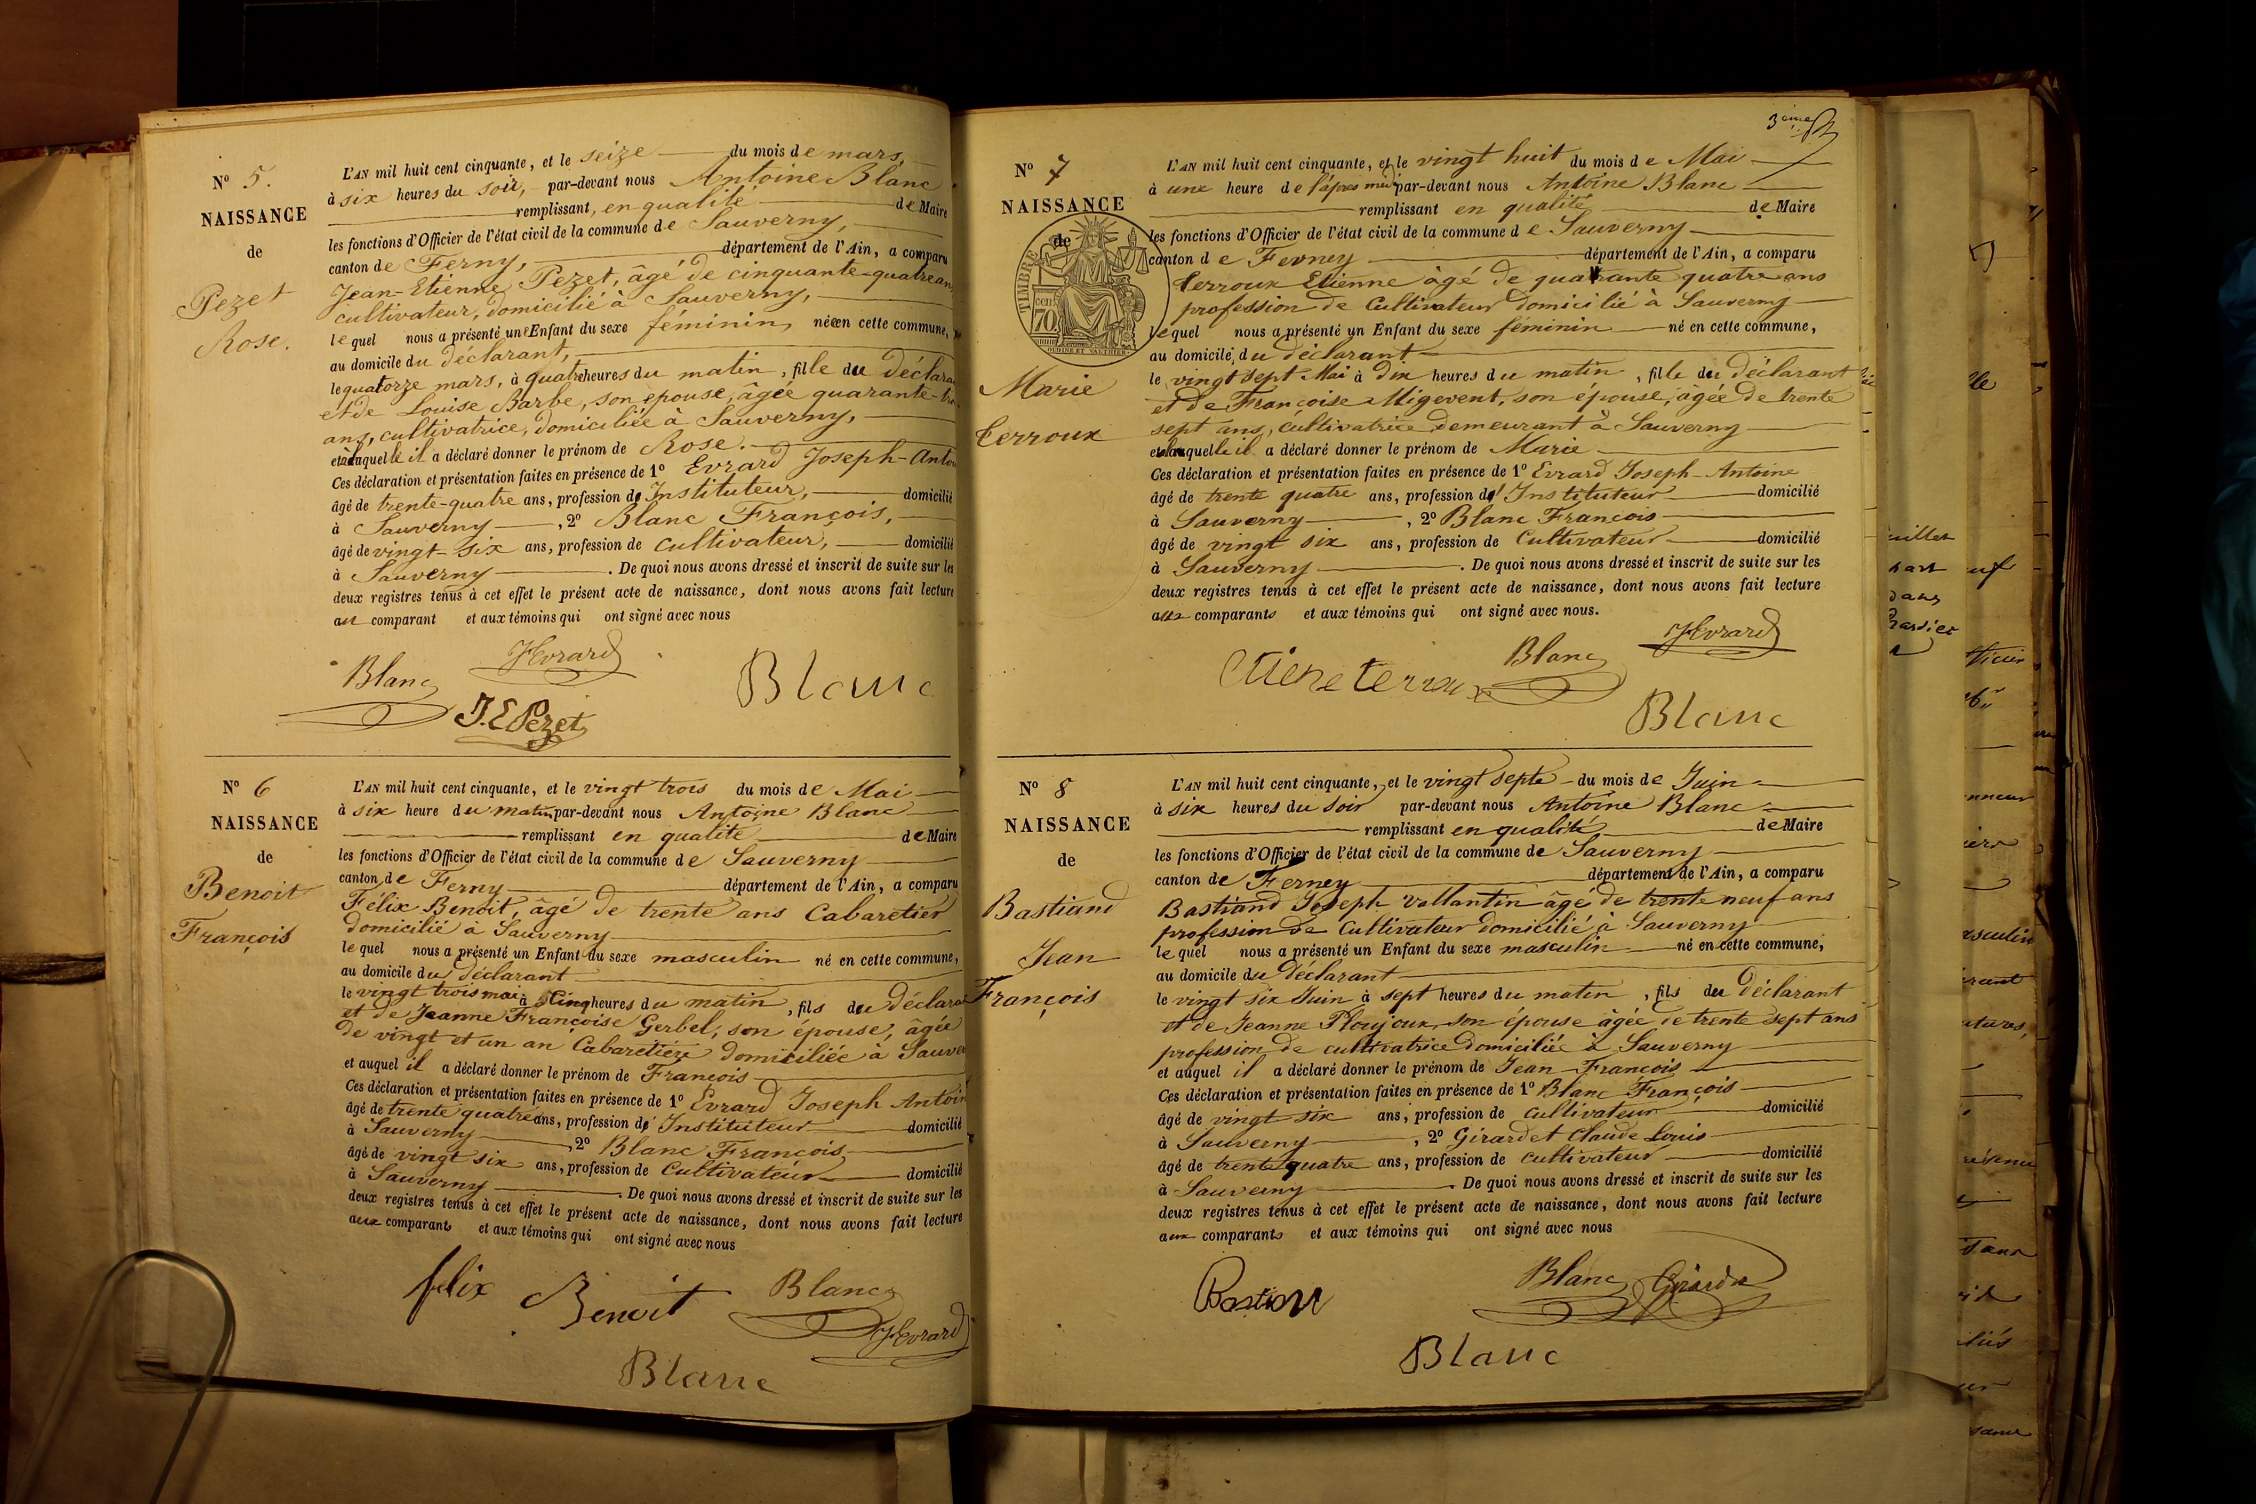 N° 5.
NAISSANCE
de
Pezet
Rose.
L'AN mil huit cent cinquante, et le seize du mois de mars,
à six heures du soir, par-devant nous Antoine Blanc
remplissant, en qualité de Maire
les fonctions d'Officier de l'état civil de la commune de Sauverny,
canton de Ferny, département de l'Ain, a comparu
Jean-Etienne Pezet, âgé de cinquante-quatre ans
cultivateur, domicilié à Sauverny,
lequel nous a présenté une Enfant du sexe féminin, née en cette commune,
au domicile du déclarant,
le quatorze mars, à quatre heures du matin, fille du déclara
et de Louise Barbe, son épouse, âgée quarante-
ans, cultivatrice, domiciliée à Sauverny,
et à laquelle il a déclaré donner le prénom de Rose.
Ces déclaration et présentation faites en présence de 1° Evrard Joseph-Anto
âgé de trente-quatre ans, profession d'Instituteur, domicilié
à Sauverny, 2° Blanc François,
âgé de vingt-six ans, profession de cultivateur, domicilié
à Sauverny. De quoi nous avons dressé et inscrit de suite sur les
deux registres tenus à cet effet le présent acte de naissance, dont nous avons fait lecture
au comparant et aux témoins qui ont signé avec nous
JEvrard
Blanc
Blanc
J. E Pezet
N° 6
NAISSANCE
de
Benoit
François
L'AN mil huit cent cinquante, et le vingt trois du mois de Mai
à six heure du matin par-devant nous Antoine Blanc
remplissant en qualité de Maire
les fonctions d'Officier de l'état civil de la commune de Sauverny
canton de Ferny département de l'Ain, a comparu
Félix Benoit, âgé de trente ans Cabaretier
domicilié à Sauverny
lequel nous a présenté un Enfant du sexe masculin né en cette commune,
au domicile du déclarant
le vingt trois mai à Cinq heures du matin, fils du déclara
et de Jeanne Françoise Gerbel, son épouse, âgée
de vingt et un an Cabaretière domiciliée à Sauver
et auquel il a déclaré donner le prénom de François
Ces déclaration et présentation faites en présence de 1° Evrard Joseph Antoin
âgé de trente quatre ans, profession d'Instituteur domicilié
à Sauverny, 2° Blanc François
âgé de vingt six ans, profession de Cultivateur domicilié
à Sauverny. De quoi nous avons dressé et inscrit de suite sur les
deux registres tenus à cet effet le présent acte de naissance, dont nous avons fait lecture
aux comparants et aux témoins qui ont signé avec nous
felix Benoit
Blanc
JEvrard
Blanc
3eme
N° 7
NAISSANCE
de
TIMBRE
70 cen
OUDINE ET VAUTHIER
Marie
Terroux
L'AN mil huit cent cinquante, et le vingt huit du mois de Mai
à une heure de l'après midi par-devant nous Antoine Blanc
remplissant en qualité de Maire
les fonctions d'Officier de l'état civil de la commune de Sauverny
canton de Ferney département de l'Ain, a comparu
Terroux Etienne âgé de quarante quatre ans
profession de Cultivateur domicilié à Sauverny
lequel nous a présenté un Enfant du sexe féminin né en cette commune,
au domicile du déclarant
le vingt sept Mai à dix heures du matin, fille du déclarant
et de Françoise Migevent, son épouse, âgée de trente
sept ans, cultivatrice demeurant à Sauverny
et laquelle il a déclaré donner le prénom de Marie
Ces déclaration et présentation faites en présence de 1° Evrard Joseph-Antoine
âgé de trente quatre ans, profession d'Instituteur domicilié
à Sauverny, 2° Blanc François
âgé de vingt six ans, profession de Cultivateur domicilié
à Sauverny. De quoi nous avons dressé et inscrit de suite sur les
deux registres tenus à cet effet le présent acte de naissance, dont nous avons fait lecture
aux comparants et aux témoins qui ont signé avec nous.
JEvrard
Etiene terroux
Blanc
Blanc
N° 8
NAISSANCE
de
Bastiand
Jean
François
L'AN mil huit cent cinquante, et le vingt septe du mois de Juin
à six heures du soir par-devant nous Antoine Blanc
remplissant en qualité de Maire
les fonctions d'Officier de l'état civil de la commune de Sauverny
canton de Ferney département de l'Ain, a comparu
Bastiand Joseph Vallantin âgé de trente neuf ans
profession de Cultivateur domicilié à Sauverny
lequel nous a présenté un Enfant du sexe masculin né en cette commune,
au domicile du déclarant
le vingt six Juin à sept heures du matin, fils du déclarant
et de Jeanne Ploujoux, son épouse âgée de trente sept ans
profession de cultivatrice domiciliée à Sauverny
et auquel il a déclaré donner le prénom de Jean-François
Ces déclaration et présentation faites en présence de 1° Blanc François
âgé de vingt six ans, profession de cultivateur domicilié
à Sauverny, 2° Girardet Claude Louis
âgé de trente quatre ans, profession de cultivateur domicilié
à Sauverny. De quoi nous avons dressé et inscrit de suite sur les
deux registres tenus à cet effet le présent acte de naissance, dont nous avons fait lecture
aux comparants et aux témoins qui ont signé avec nous
Blanc
Bastian
Blanc